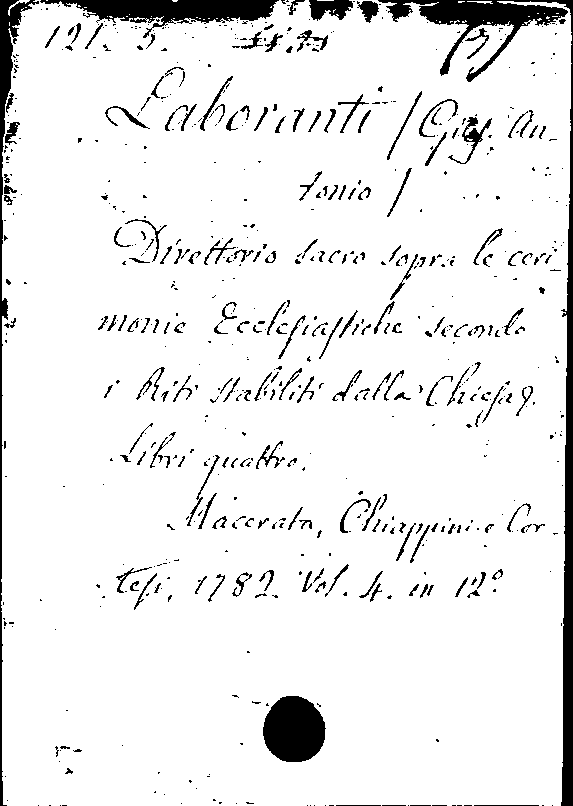 121. 5.
Laboranti / Gius. An-
tonio /
Direttorio sacro sopra le ceri-
monie Ecclesiastiche secondo
i Riti stabiliti dalla Chiesa &.
Libri quattro.
Macerata, Chiappini e Cor-
tesi, 1782. Vol. 4. in 12º